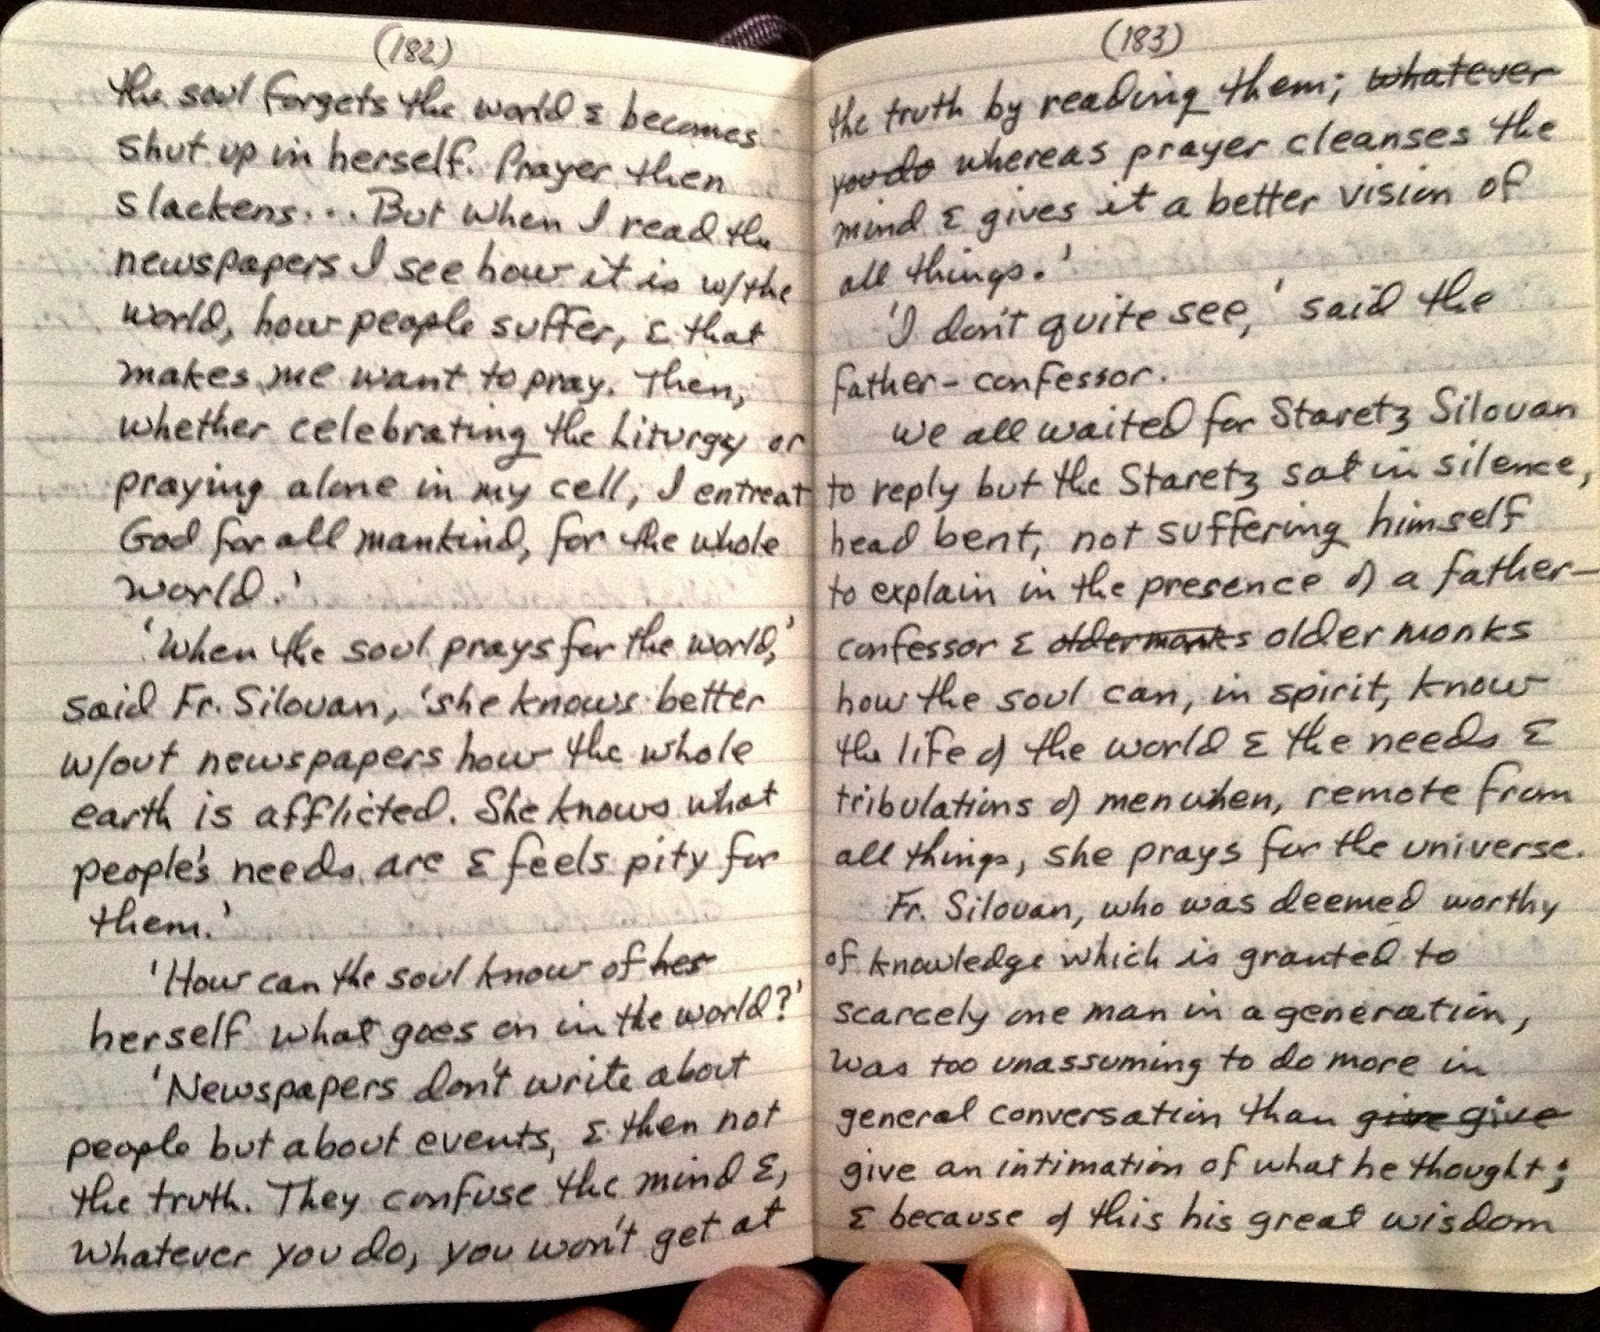 (182)
the soul forgets the world & becomes
shut up in herself. Prayer then
slackens... But when I read the
newspapers I see how it is w/the
world, how people suffer, & that
makes me want to pray. Then,
whether celebrating the Liturgy or
praying alone in my cell, I entreat
God for all mankind, for the whole
world.'
'When the soul prays for the world,'
said Fr. Silouan, 'she knows better
w/out newspapers how the whole
earth is afflicted. She knows what
people's needs are & feels pity for
them.'
'How can the soul know of her
herself what goes on in the world?'
'Newspapers don't write about
people but about events, & then not
the truth. They confuse the mind &,
whatever you do, you won't get at
(183)
the truth by reading them; whatever
you do whereas prayer cleanses the
mind & gives it a better vision of
all things.'
'I don't quite see,' said the
father-confessor.
We all waited for Staretz Silouan
to reply but the Staretz sat in silence,
head bent, not suffering himself
to explain in the presence of a father-
confessor & older monks older monks
how the soul can, in spirit, know
the life of the world & the needs &
tribulations of men when, remote from
all things, she prays for the universe.
Fr. Silouan, who was deemed worthy
of knowledge which is granted to
scarcely one man in a generation,
was too unassuming to do more in
general conversation than give give
give an intimation of what he thought;
& because of this his great wisdom